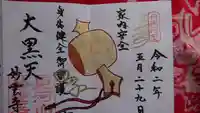 令和二年
五月二十九日
家内安全
身体健全御守護
大黒天